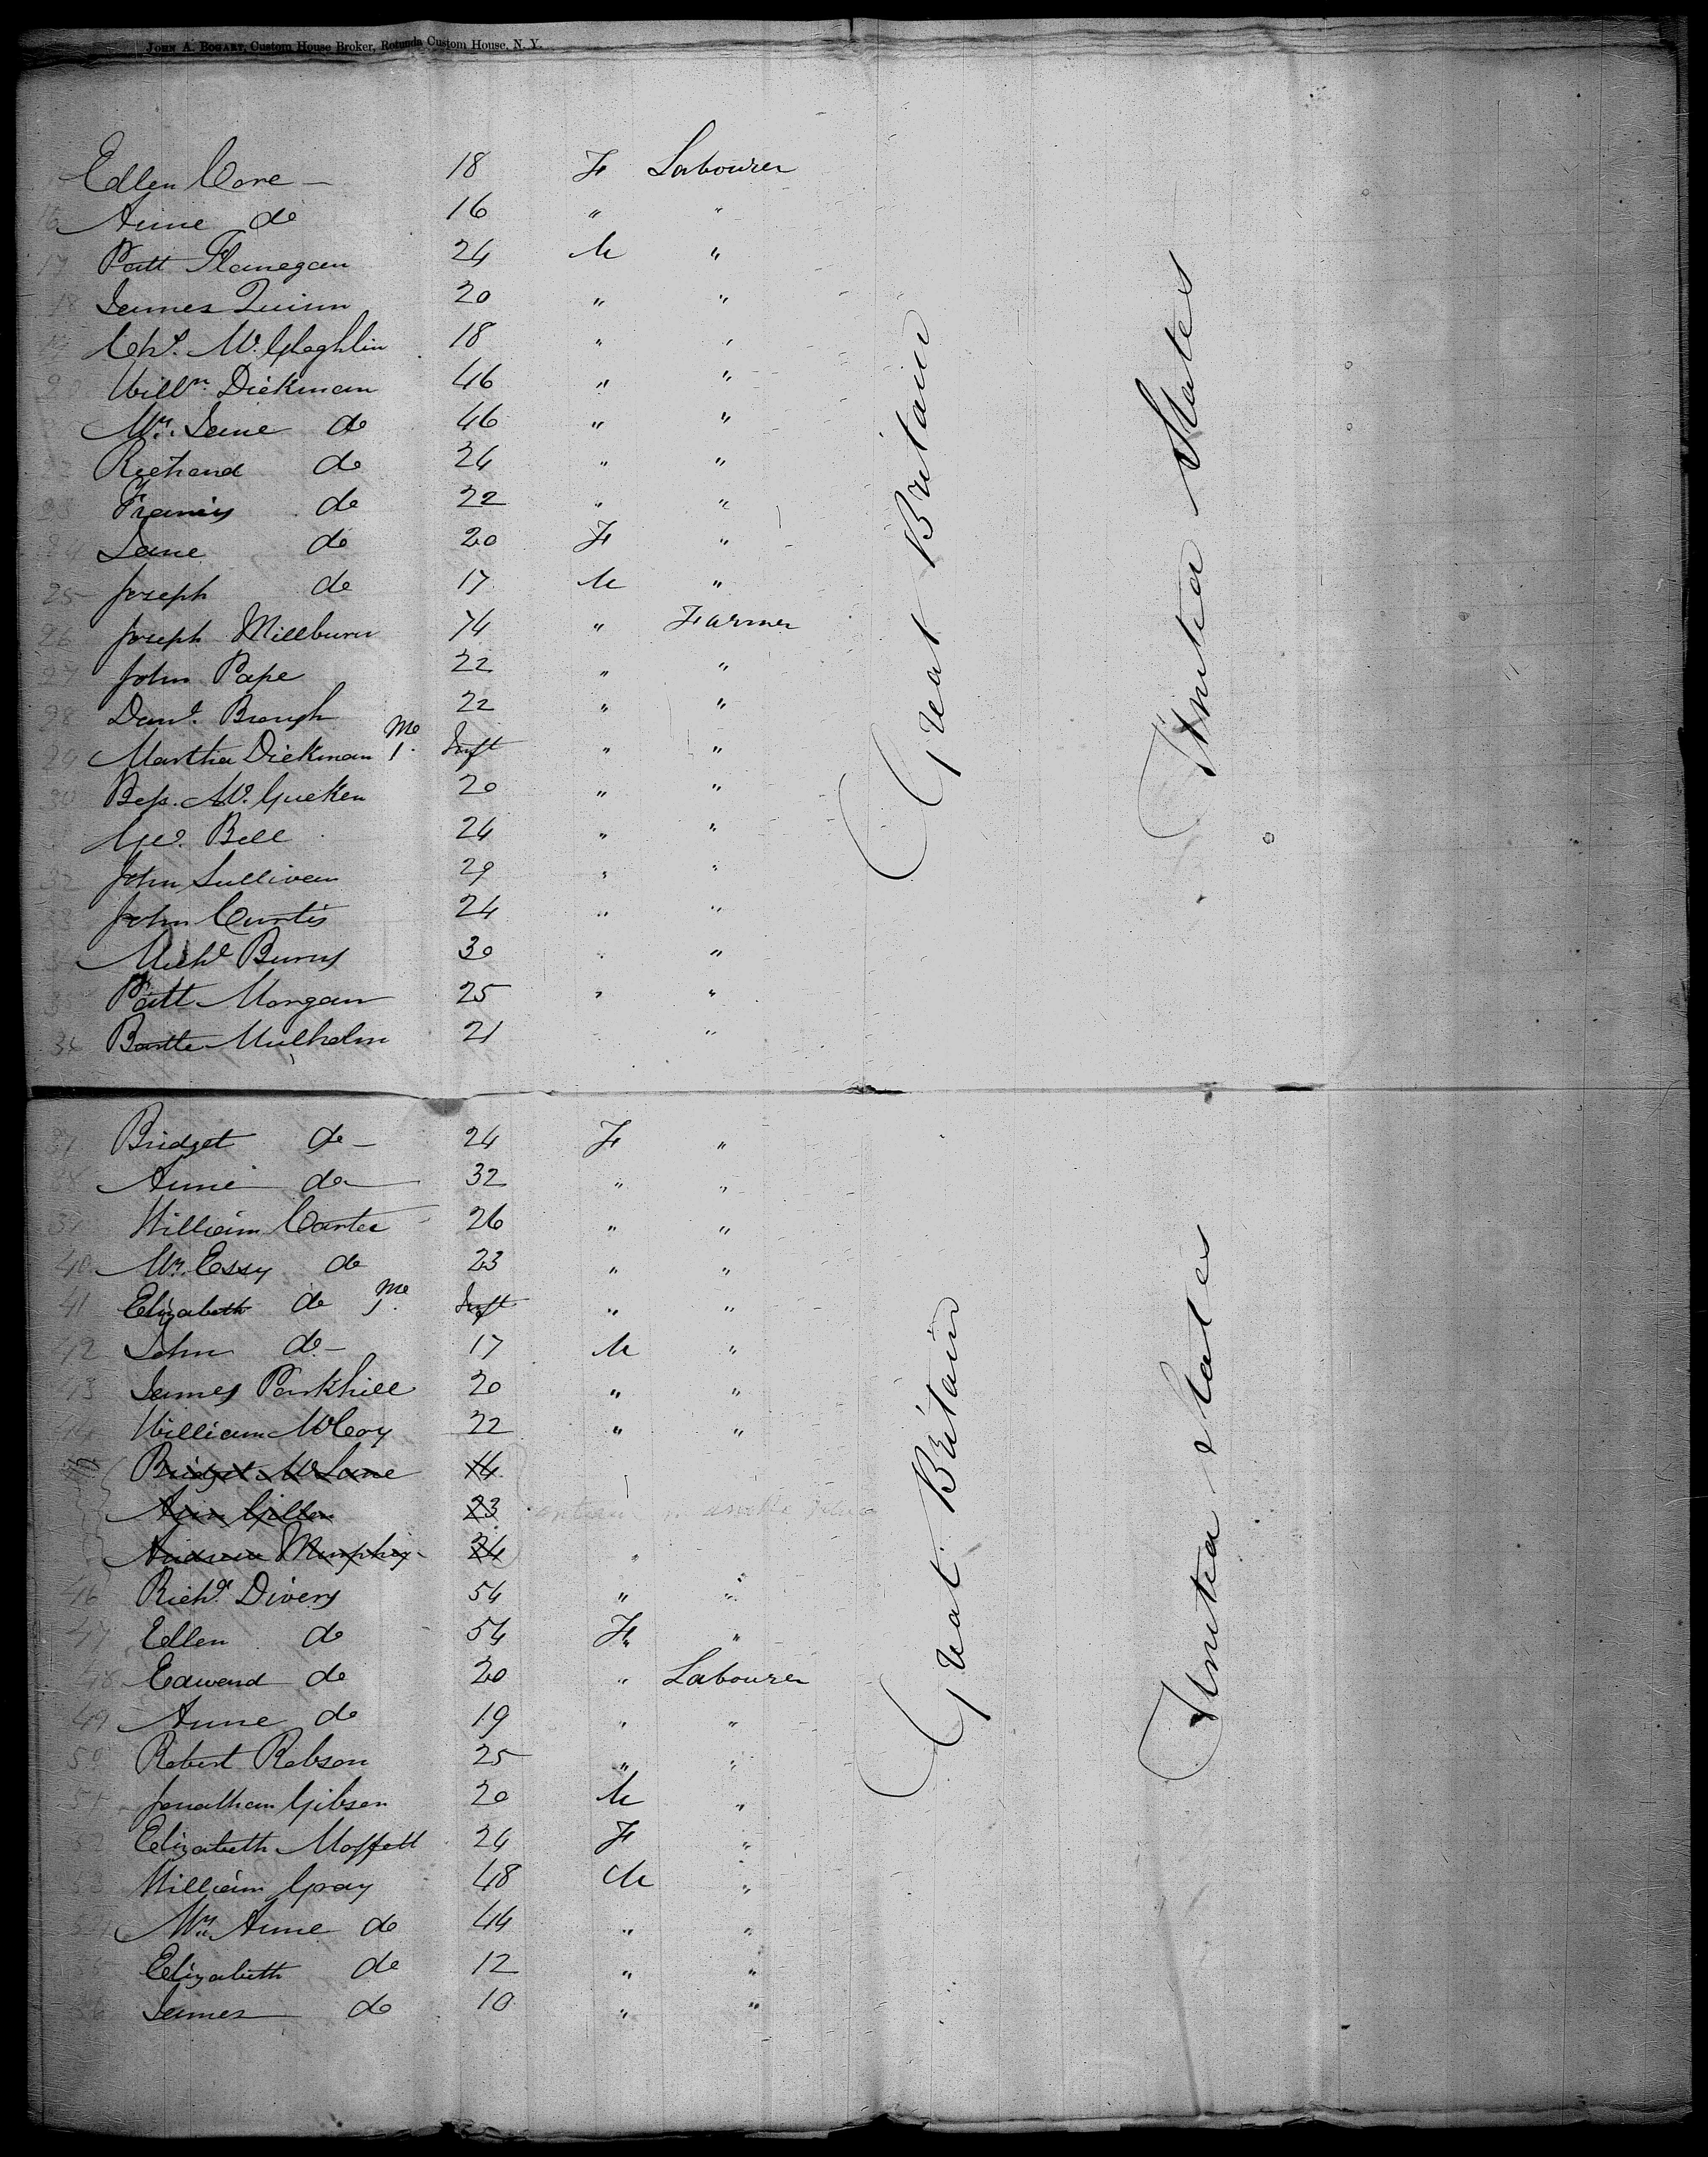 JOHN A. BOGART, Custom House Broker, Rotunda Custom House, N. Y.
Ellen Core — 18 F Labourer
16 Anne do 16 " "
17 Patt Flanegan 24 M "
18 James Quinn 20 " "
Chs. Mc.Gloghlin 18 " "
20 Willm. Dickman 46 " "
Mrs. Jane do 46 " "
22 Richard do 24 " "
23 Francis do 22 " "
24 Jane do 20 F "
25 Joseph do 17 M "
26 Joseph Millburn 74 " Farmer
27 John Pape 22 " "
28 Danl. Brough 22 " "
29 Martha Dickman 1 mo Inft " "
30 Bess. Mc.Gucken 20 " "
Geo. Bell 24 " "
32 John Sullivan 29 " "
33 John Curtis 24 " "
Michl Burns 30 " "
35 Patt Morgan 25 " "
36 Bartle Mulholm 21 "
37 Bridget do — 24 F "
38 Anne do 32 " "
39 William Carter 26 " "
40 Mrs. Essy do 23 " "
41 Elizabeth do 1 mo Inft " "
42 John do — 17 M "
43 James Parkhill 20 " "
44 William McCoy 22 " "
Bridget McLane
Ann Gillen 23
Andrew Murphy 24 "
46 Richd. Divers 54 " "
47 Ellen do 54 F "
48 Edward do 20 " Labourer
49 Anne do 19 " "
50 Robert Robson 25 " "
51 Jonathan Gibson 20 M "
52 Elizabeth Moffett 24 F "
53 William Gray 48 M "
54 Mrs. Anne do 44 " "
55 Elizabeth do 12 " "
56 James do 10 " "
Great Britain
United States
Great Britain
United States